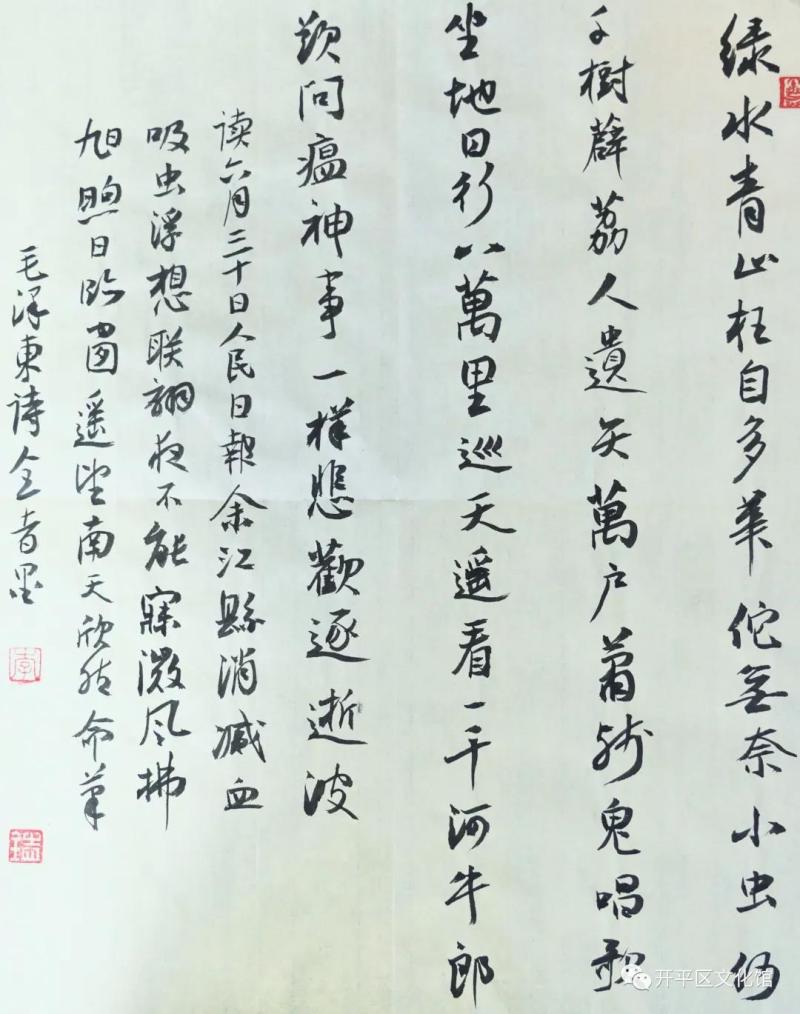 绿水青山枉自多華佗無奈小虫何
千樹薜荔人遺矢萬户蕭疏鬼唱歌
坐地日行八萬里巡天遥看一千河牛郎
欲问瘟神事一樣悲歡逐逝波
读六月三十日人民日報余江縣消滅血
吸虫浮想联翩夜不能寐微风拂
旭煦日臨窗遥望南天欣然命筆
毛泽東诗
李
开平区文化馆